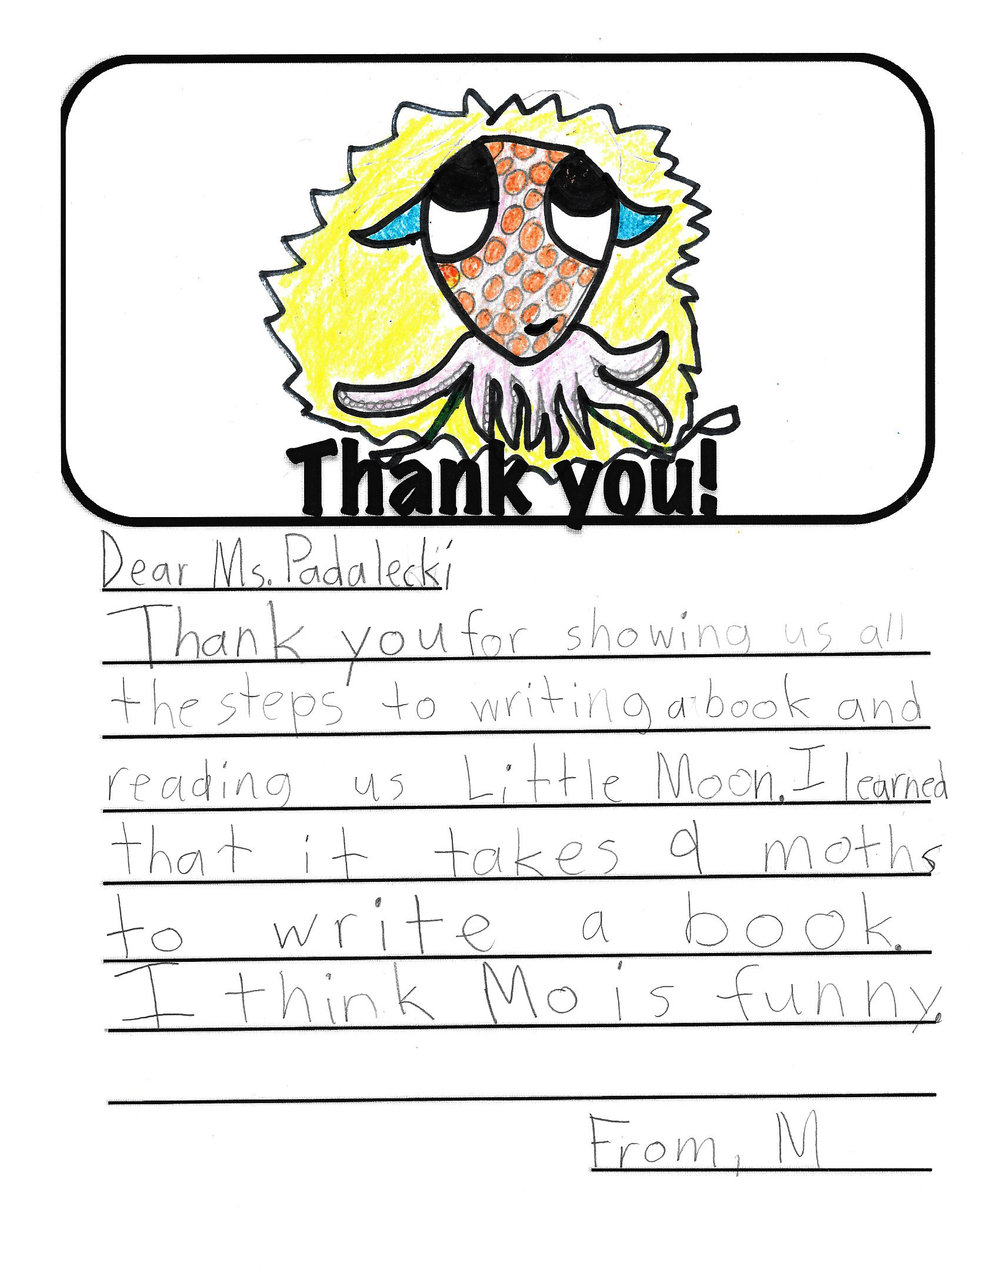 Thank you!
Dear Ms. Padalecki
Thank you for showing us all
the steps to writing a book and
reading us Little Moon. I learned
that it takes 9 moths
to write a book.
I think Mo is funny.
From, M